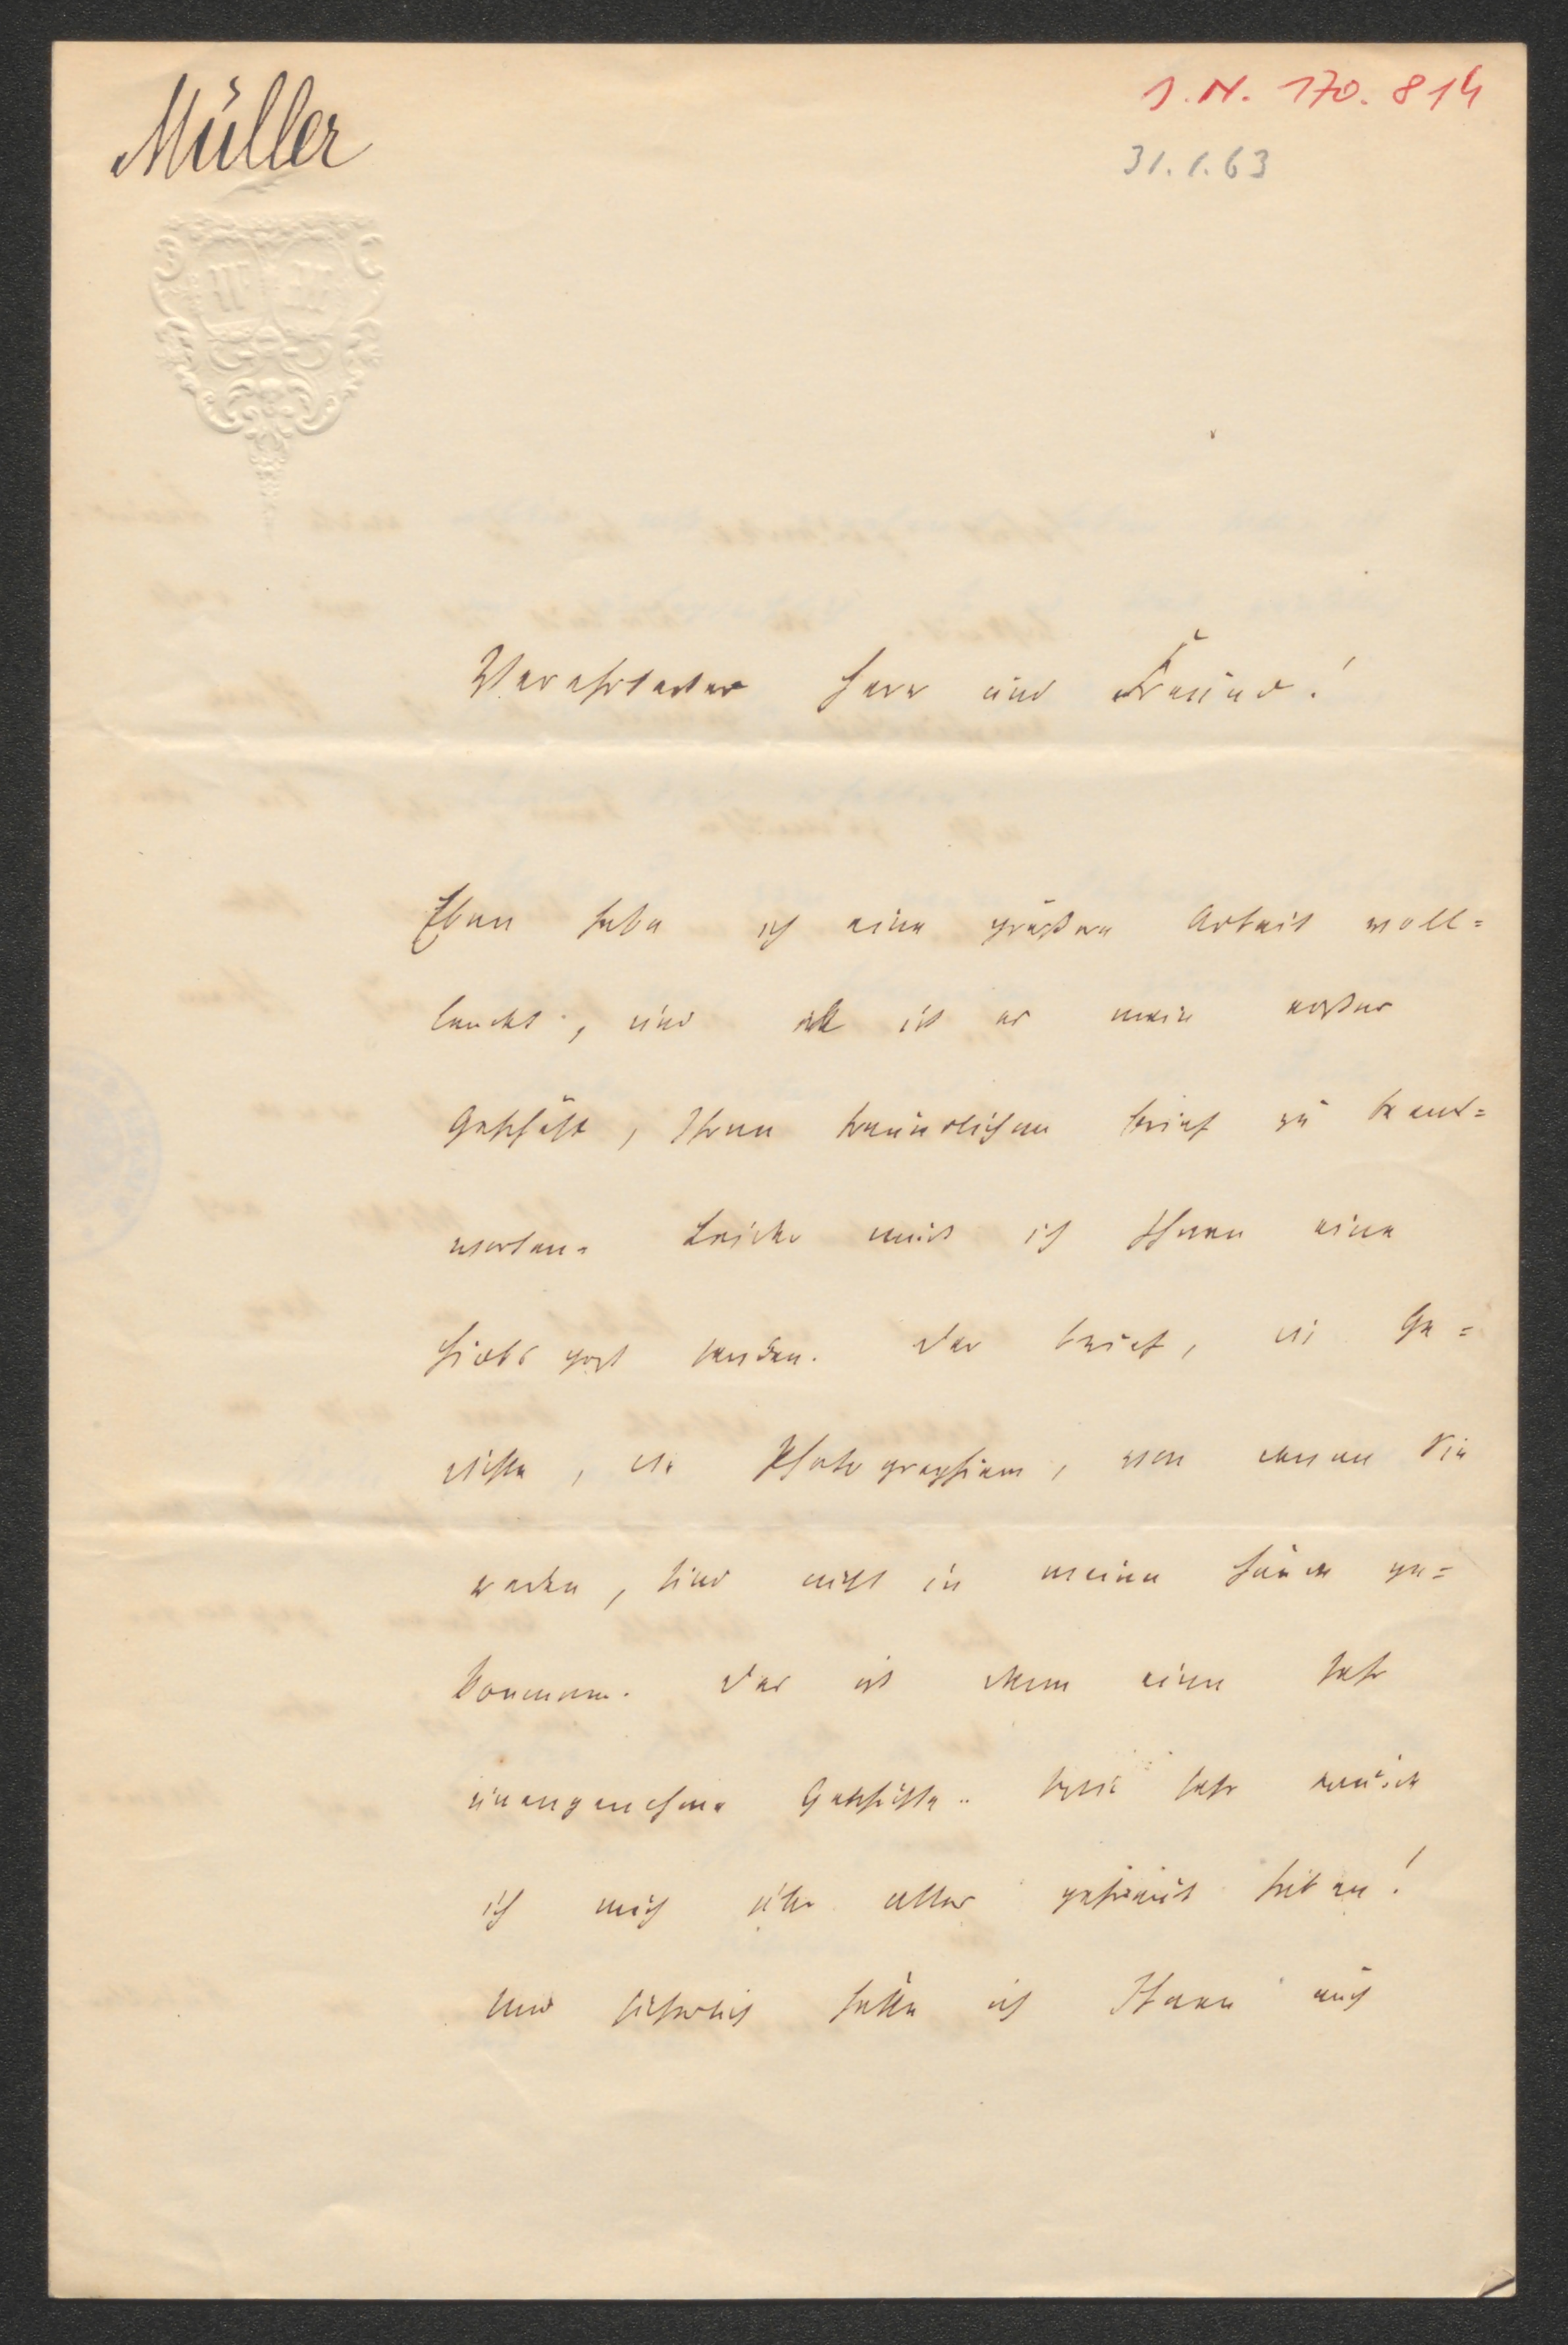 Müller
I.N. 170.814
31.1.63
Verehrtester Herr und Freund!
Eben habe ich eine größere Arbeit voll=
endet, und ist es mein erstes
Geschäft, Ihren freundlichen Brief zu beant=
worten. Leider muß ich Ihnen eine
Hiobspost senden. Der Brief, die Ge=
dichte, die Photographieen, von denen Sie
reden, sind nicht in meine Hände ge=
kommen. Das ist denn eine sehr
unangenehme Geschichte. Wie sehr würde
ich mich über alles gefreut haben!
Und sicherlich hätte ich Ihnen auch